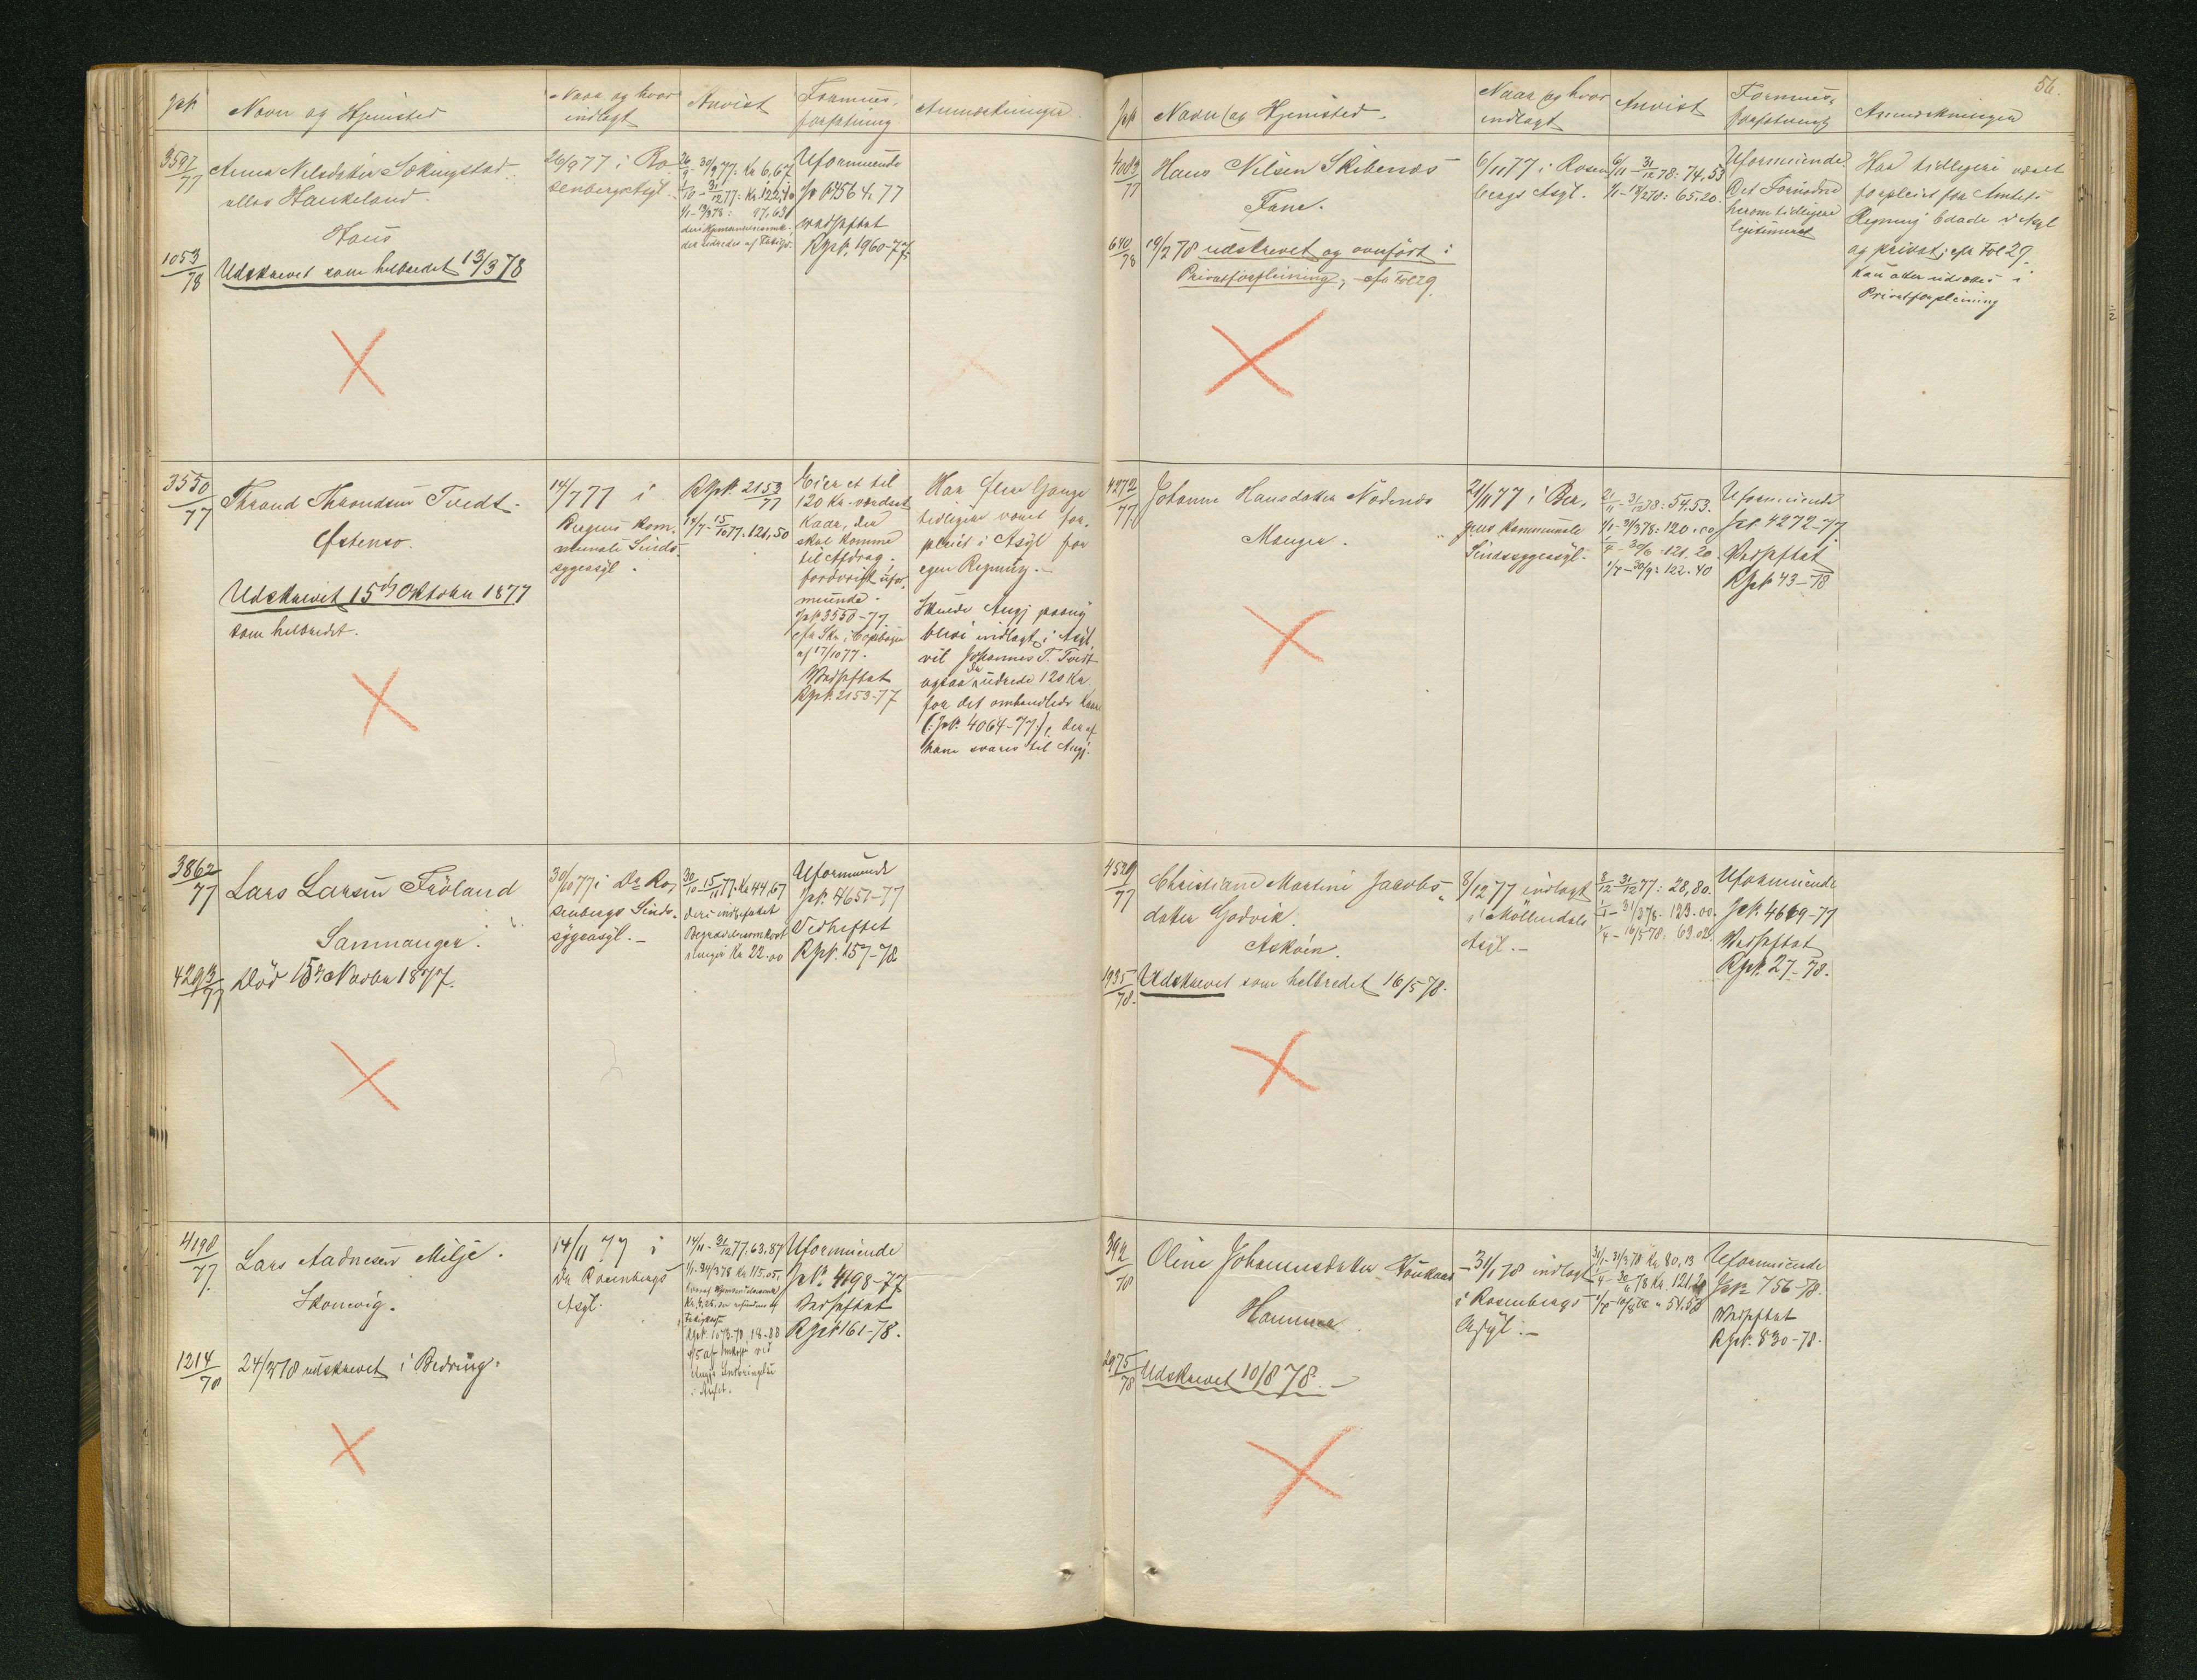 Jnl.
Navn og Hjemsted
Naar og hvor
indlagt
Anvist
Formues-
forfatning
Anmærkninger
3597/77
Anna Nilsdatter
eller Haukeland.
Haus
1053/78
Udskrevet som helbredet 13/3 78
26/9 77 i Ro-
senbergs Asyl.
26/9 - 30/9 77: Kr 6,67
1/10 - 31/12 77: Kr. 122,
1/1 - 13/3 78:
Uformuende
Jn 4564, 77
vedheftet
RJnl. 1960-77
3550/77
Thrond Throndsen Tvedt.
Østensø.
Udskrevet 15de Oktober 1877
som helbredet.
14/7 77 i
Bergens Kom-
munale Sinds-
sygeasyl.
RJnl. 2153/77
14/7 - 15/10 77: 121,50
Eier et til
120 Kr. værdsat
Kaar, der
skal komme
til Afdrag,
forøvrigt ufor-
muende.
Jnl. 3550-77.
cfr Skr. i Copibogen
af 17/10 77.
Vedheftet
RJnl. 2153-77
Har flere Gange
tidligere været for-
pleiet i Asyl for
egen Regning.-
Skulde Angj paany
blive indlagt i Asyl,
vil Johannes T. Tvedt
ogsaa da udrede 120 Kr.
for det omhandlede Kaar
(:Jnl. 4064-77:), der af
ham svares til Angj.
3862/77
Lars Larsen Fröland
Samnanger.
4293/77
Död 15de Novbr 1877.
30/10 77 i Dr. Ro-
senbergs Sinds-
sygeasyl.-
30/10 - 15/11 77: Kr 44,67
deri indbefattet
Begravelsesomkost-
ninger Kr 22.00
Uformuende
Jnl. 4651-77
Vedheftet
RJnl. 157-78
4198/77
Lars Aadnesen Milje.
Skonevig.
1214/78
24/3 78 udskrevet i Bedring.
14/11 77 i
Dr Rosenbergs
Asyl.
14/11 - 31/12 77: 63,87
1/1 - 24/3 78 Kr 115.05,
RJnl. 1073-78, 18-88
i Asylet.
Uformuende
Jnl. 4198-77
Vedheftet
RJnl 161-78.
56.
Jnl
Navn og Hjemsted.
Naar og hvor
indlagt
Anvist
Formues-
forfatning
Anmærkninger
4083/77
Hans Nilsen Skibenæs
Fane.
640/78
19/2 78 udskrevet og overført i
Privatforpleining; cfr Fol 29.
6/11 77 i Rosen-
bergs Asyl.
6/11 - 31/12 78: 74,53
1/1 - 19/2 78: 65.20.
Uformuende
Det Fornødne
herom tidligere
legitimeret
Har tidligere været
forpleiet for Amtets
Regning baade i Asyl
og privat; cfr Fol 29.
Kan atter udsættes i
Privatforpleining
4272/77
Johanne Hansdatter Nodenæs
Manger.
21/11 77 i Ber-
gens Kommunale
Sindssygeasyl.
21/11 - 31/12 78: 54.53.
1/1 - 31/3 78: 120.00
1/4 - 30/6: 121.20.
1/7 - 30/9: 122.40
Uformuende
Jnl. 4272-77.
Vedheftet
RJnl 43-78
4529/77
Christiane Martine Jacobs-
datter Godvik.
Askøen.
1935/78.
Udskrevet som helbredet 16/5 78.
8/12 77 indlagt
i Möllendals
Asyl.-
8/12 - 31/12 77: 28,80.
1/1 - 31/3 78: 123.00.
1/4 - 16/5 78: 63.02.
Uformuende
Jnl. 4619-77
Vedheftet
RJnl. 27-78.
392/78
Oline Johannesdatter
Hammer.
2975/78
Udskrevet 10/8 78.-
31/1 78 indlagt
i Rosenbergs
Asyl.-
31/1 - 31/3 78 Kr 80,13
1/4 - 30/6 78 Kr. 121.20
1/7 - 10/8 78 " 54.53
Uformuende
Jnl. 756-78.
Vedheftet
RJnl. 830-78.